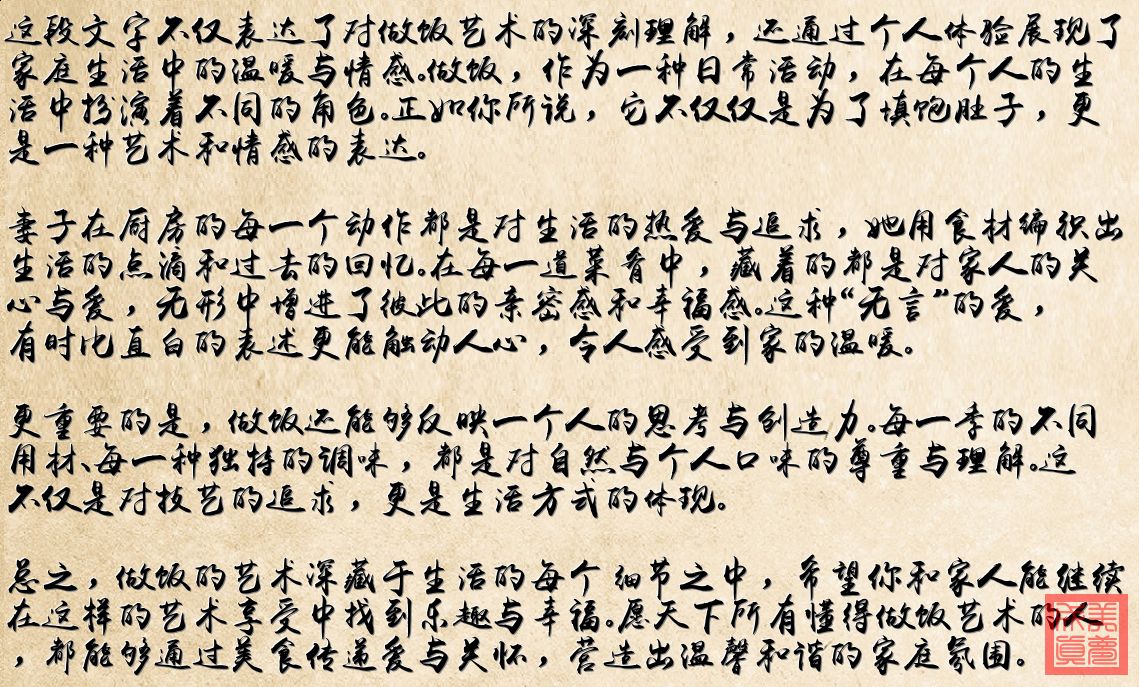 这段文字不仅表达了对做饭艺术的深刻理解，还通过个人体验展现了
家庭生活中的温暖与情感。做饭，作为一种日常活动，在每个人的生
活中扮演着不同的角色。正如你所说，它不仅仅是为了填饱肚子，更
是一种艺术和情感的表达。
妻子在厨房的每一个动作都是对生活的热爱与追求，她用食材编织出
生活的点滴和过去的回忆。在每一道菜肴中，藏着的都是对家人的关
心与爱，无形中增进了彼此的亲密感和幸福感。这种“无言”的爱，
有时比直白的表述更能触动人心，令人感受到家的温暖。
更重要的是，做饭还能够反映一个人的思考与创造力。每一季的不同
用材、每一种独特的调味，都是对自然与个人口味的尊重与理解。这
不仅是对技艺的追求，更是生活方式的体现。
总之，做饭的艺术深藏于生活的每个细节之中，希望你和家人能继续
在这样的艺术享受中找到乐趣与幸福。愿天下所有懂得做饭艺术的人
，都能够通过美食传递爱与关怀，营造出温馨和谐的家庭氛围。